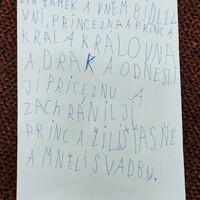 DEN ZÁMEK A V NĚM BIDLEL
VNÍ, PRINCEZNA A PRINC A
KRÁL A KRÁLOVNA
A DRAK A ODNESLI
JI PRICEZNU A
ZACHRANIL JI
PRINC A ŽILI ŠŤASŇE
A MNĚLI SVADBU.